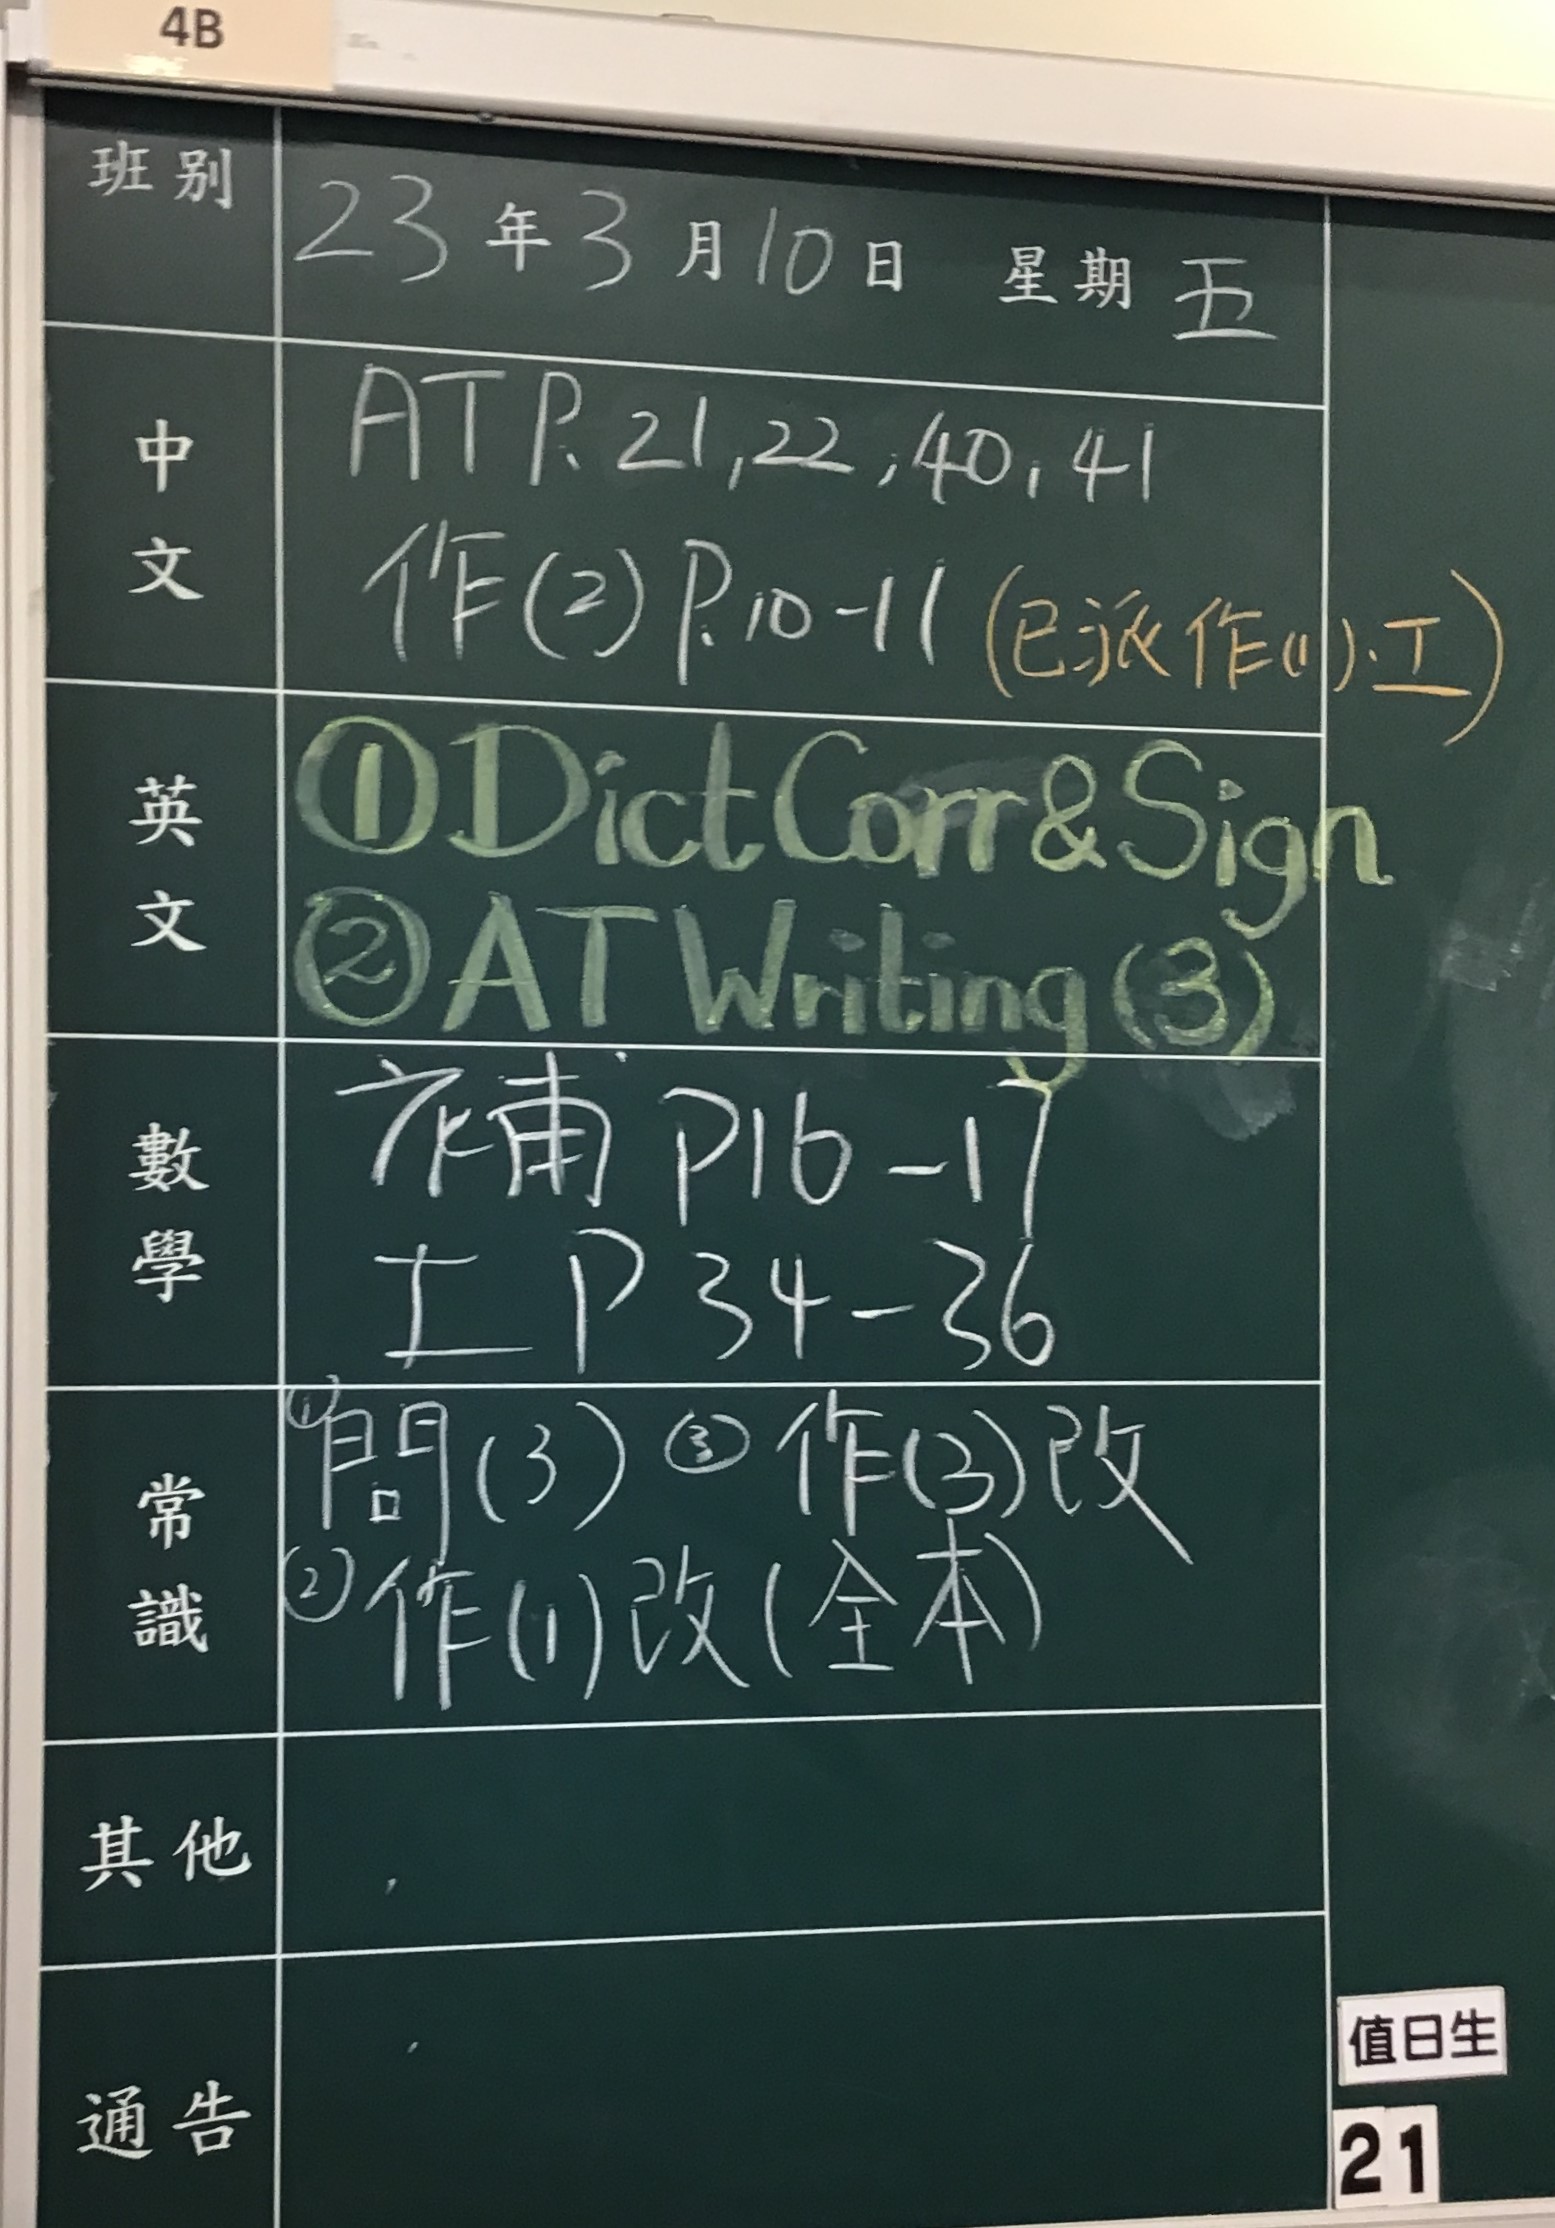 4B
班別 23年3月10日 星期五
中文
AT P.21,22,40,41
作(2) P.10-11 (已派作(1)、工)
英文
①Dict Corr & Sign
②AT Writing (3)
數學
補 P16-17
工 P34-36
常識
①問(3) ③作(3)改
②作(1)改(全本)
其他
通告
值日生
21